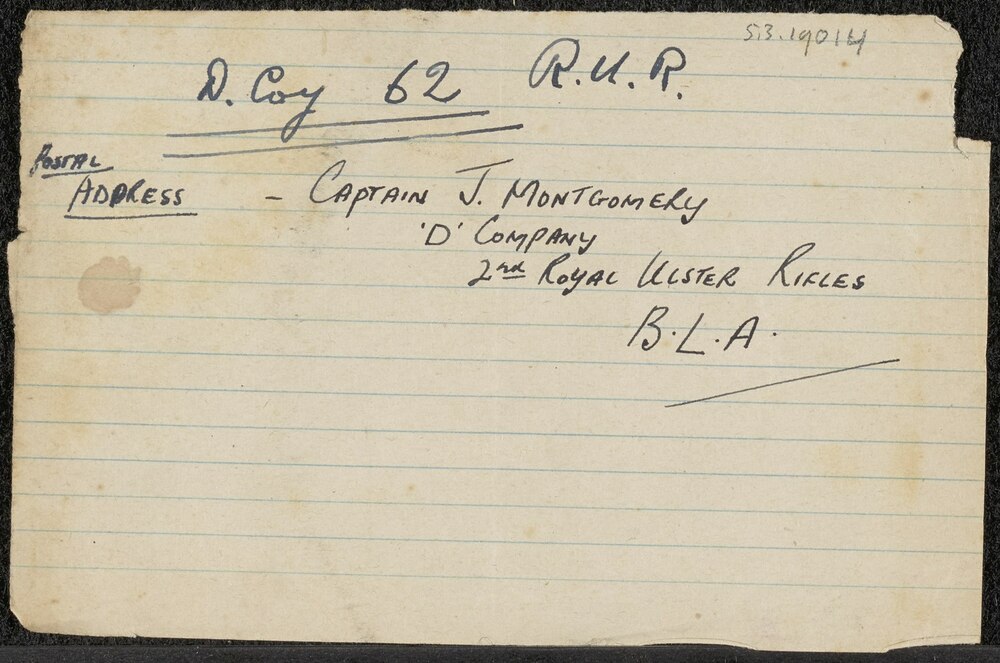 53.19014
D. Coy 62 R.U.R.
POSTAL
ADDRESS - CAPTAIN J. MONTGOMERY
'D' COMPANY
2nd ROYAL ULSTER RIFLES
B.L.A.